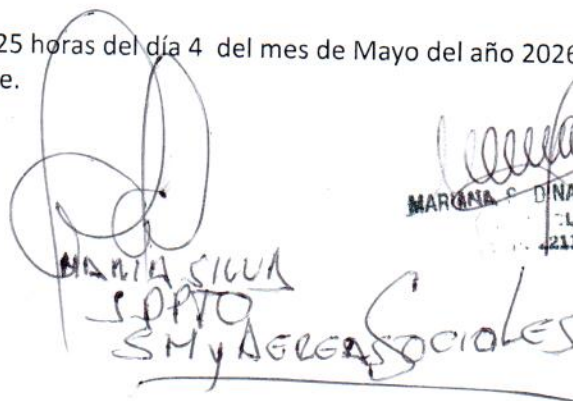 25 horas del día 4 del mes de Mayo del año 2026
e.
MARIANA
MARIA SILVA
SDPTO
SM y AEREAS SOCIOLES